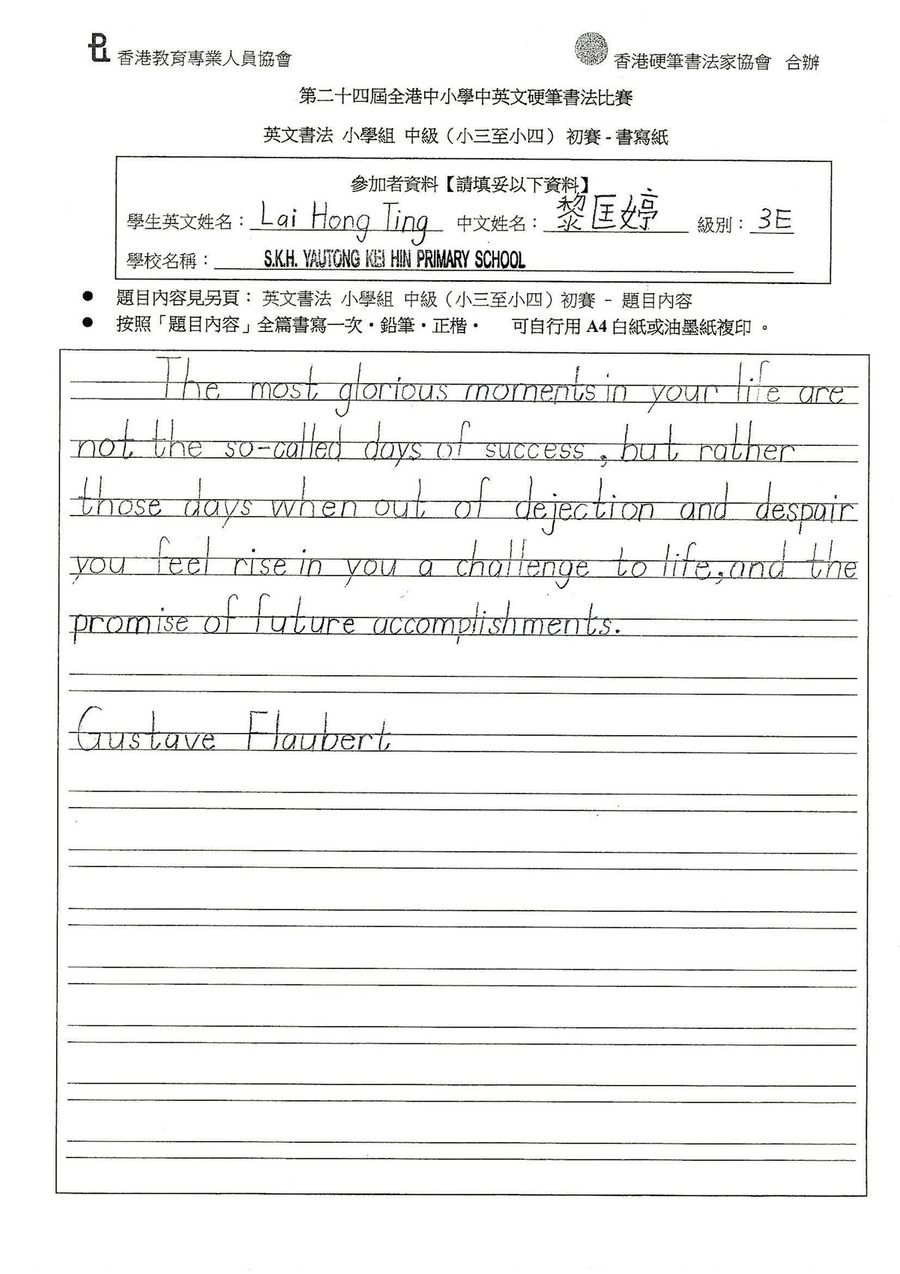 香港教育專業人員協會
香港硬筆書法家協會 合辦
第二十四屆全港中小學中英文硬筆書法比賽
英文書法 小學組 中級（小三至小四）初賽 - 書寫紙
參加者資料【請填妥以下資料】
學生英文姓名： Lai Hong Ting 中文姓名： 黎匡婷 級別： 3E
學校名稱： S.K.H. YAUTONG KEI HIN PRIMARY SCHOOL
● 題目內容見另頁： 英文書法 小學組 中級（小三至小四）初賽 - 題目內容
● 按照「題目內容」全篇書寫一次・鉛筆・正楷・ 可自行用 A4 白紙或油墨紙複印 。
The most glorious moments in your life are
not the so-called days of success, but rather
those days when out of dejection and despair
you feel rise in you a challenge to life, and the
promise of future accomplishments.
Gustave Flaubert